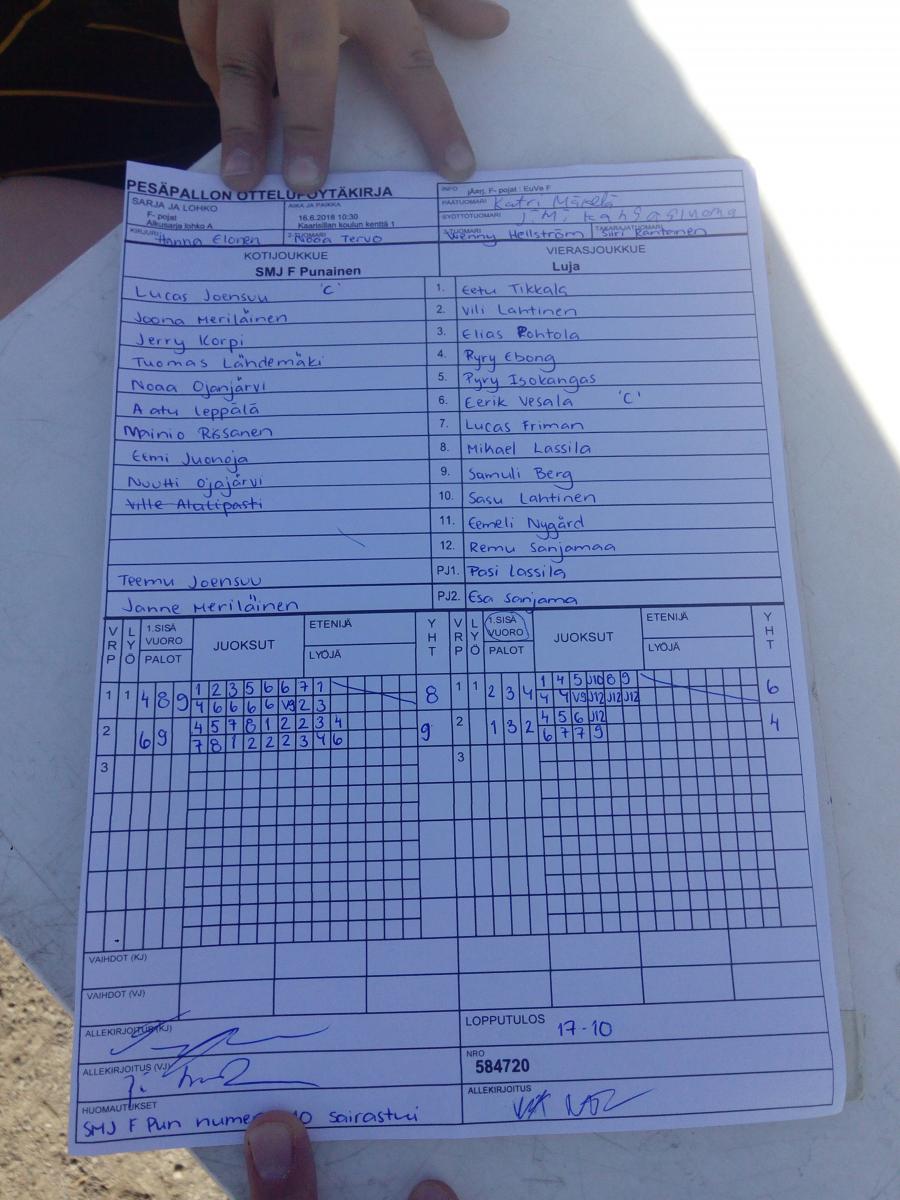 PESÄPALLON OTTELUPÖYTÄKIRJA
INFO jÄarj. F- pojat : EuVe F
SARJA JA LOHKO
F- pojat
Alkusarja lohko A
AIKA JA PAIKKA
16.6.2018 10:30
Kaarisillan koulun kenttä 1
PÄÄTUOMARI Katri Mäkelä
SYÖTTÖTUOMARI
KIRJURI Hanna Elonen
2-TUOMARI Nooa Tervo
3-TUOMARI Wenny Hellström
TAKARAJATUOMARI Siiri Rantanen
KOTIJOUKKUE
SMJ F Punainen
VIERASJOUKKUE
Luja
Lucas Joensuu 'C' 1. Eetu Tikkala
Joona Meriläinen 2. Vili Lahtinen
Jerry Korpi 3. Elias Pohtola
Tuomas Lähdemäki 4. Pyry Ebong
Nooa Ojanjärvi 5. Pyry Isokangas
Aatu Leppälä 6. Eerik Vesala 'C'
Mainio Rissanen 7. Lucas Friman
Eemi Juonoja 8. Mihael Lassila
Nuutti Ojajärvi 9. Samuli Berg
Ville Alatipasti 10. Sasu Lahtinen
11. Eemeli Nygård
12. Remu Sanjamaa
Teemu Joensuu PJ1. Pasi Lassila
Janne Meriläinen PJ2. Esa Sanjama
VRP LYÖ 1.SISÄ VUORO PALOT JUOKSUT ETENIJÄ LYÖJÄ YHT VRP LYÖ 1.SISÄ VUORO PALOT JUOKSUT ETENIJÄ LYÖJÄ YHT
1 1 4 8 9 1 2 3 5 6 6 7 1 8 1 1 2 3 4 1 4 5 J10 8 9 6
4 6 6 6 6 V9 2 3 4 4 V9 J12 J12 J12
2 6 9 4 5 7 8 1 2 2 3 4 9 2 1 3 2 4 5 6 J12 4
7 8 1 2 2 2 3 4 6 6 7 7 9
3 3
VAIHDOT (KJ)
VAIHDOT (VJ)
ALLEKIRJOITUS (KJ)
LOPPUTULOS 17-10
ALLEKIRJOITUS (VJ)
NRO
584720
HUOMAUTUKSET
SMJ F Pun 10 sairastui
ALLEKIRJOITUS